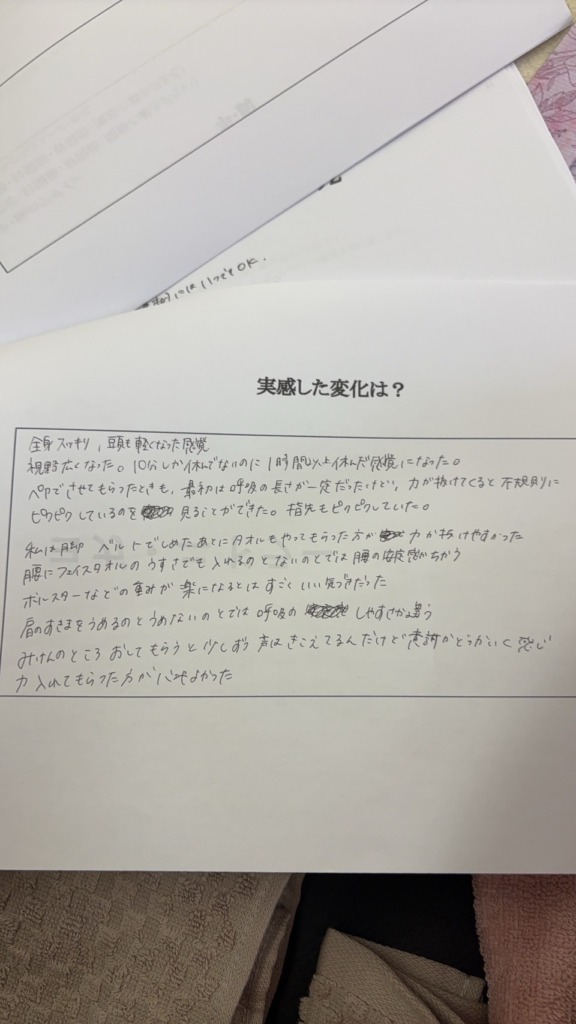 にはいつでもOK.
実感した変化は？
全身スッキリ，頭も軽くなった感覚
視野広くなった。10分しか休んでないのに1時間以上休んだ感覚になった。
ペアでさせてもらったときも，最初は呼吸の長さが一定だったけど，力が抜けてくると不規則に
ピクピクしているのを見ることができた。指先もピクピクしていた。
私は脚 ベルトでしめたあとにタオルもやってもらった方が力が抜けやすかった
腰にフェイスタオルのうすさでも入れるのとないのとでは腰の安定感がちがう
ボルスターなどの重みが楽になるとはすごくいい気づきだった
肩のすきまをうめるのとうめないのとでは呼吸のしやすさが違う
みけんのところおしてもらうと少しずつ声はきこえてるんだけど意識がとおのいていく感じ
力入れてもらった方が心地よかった